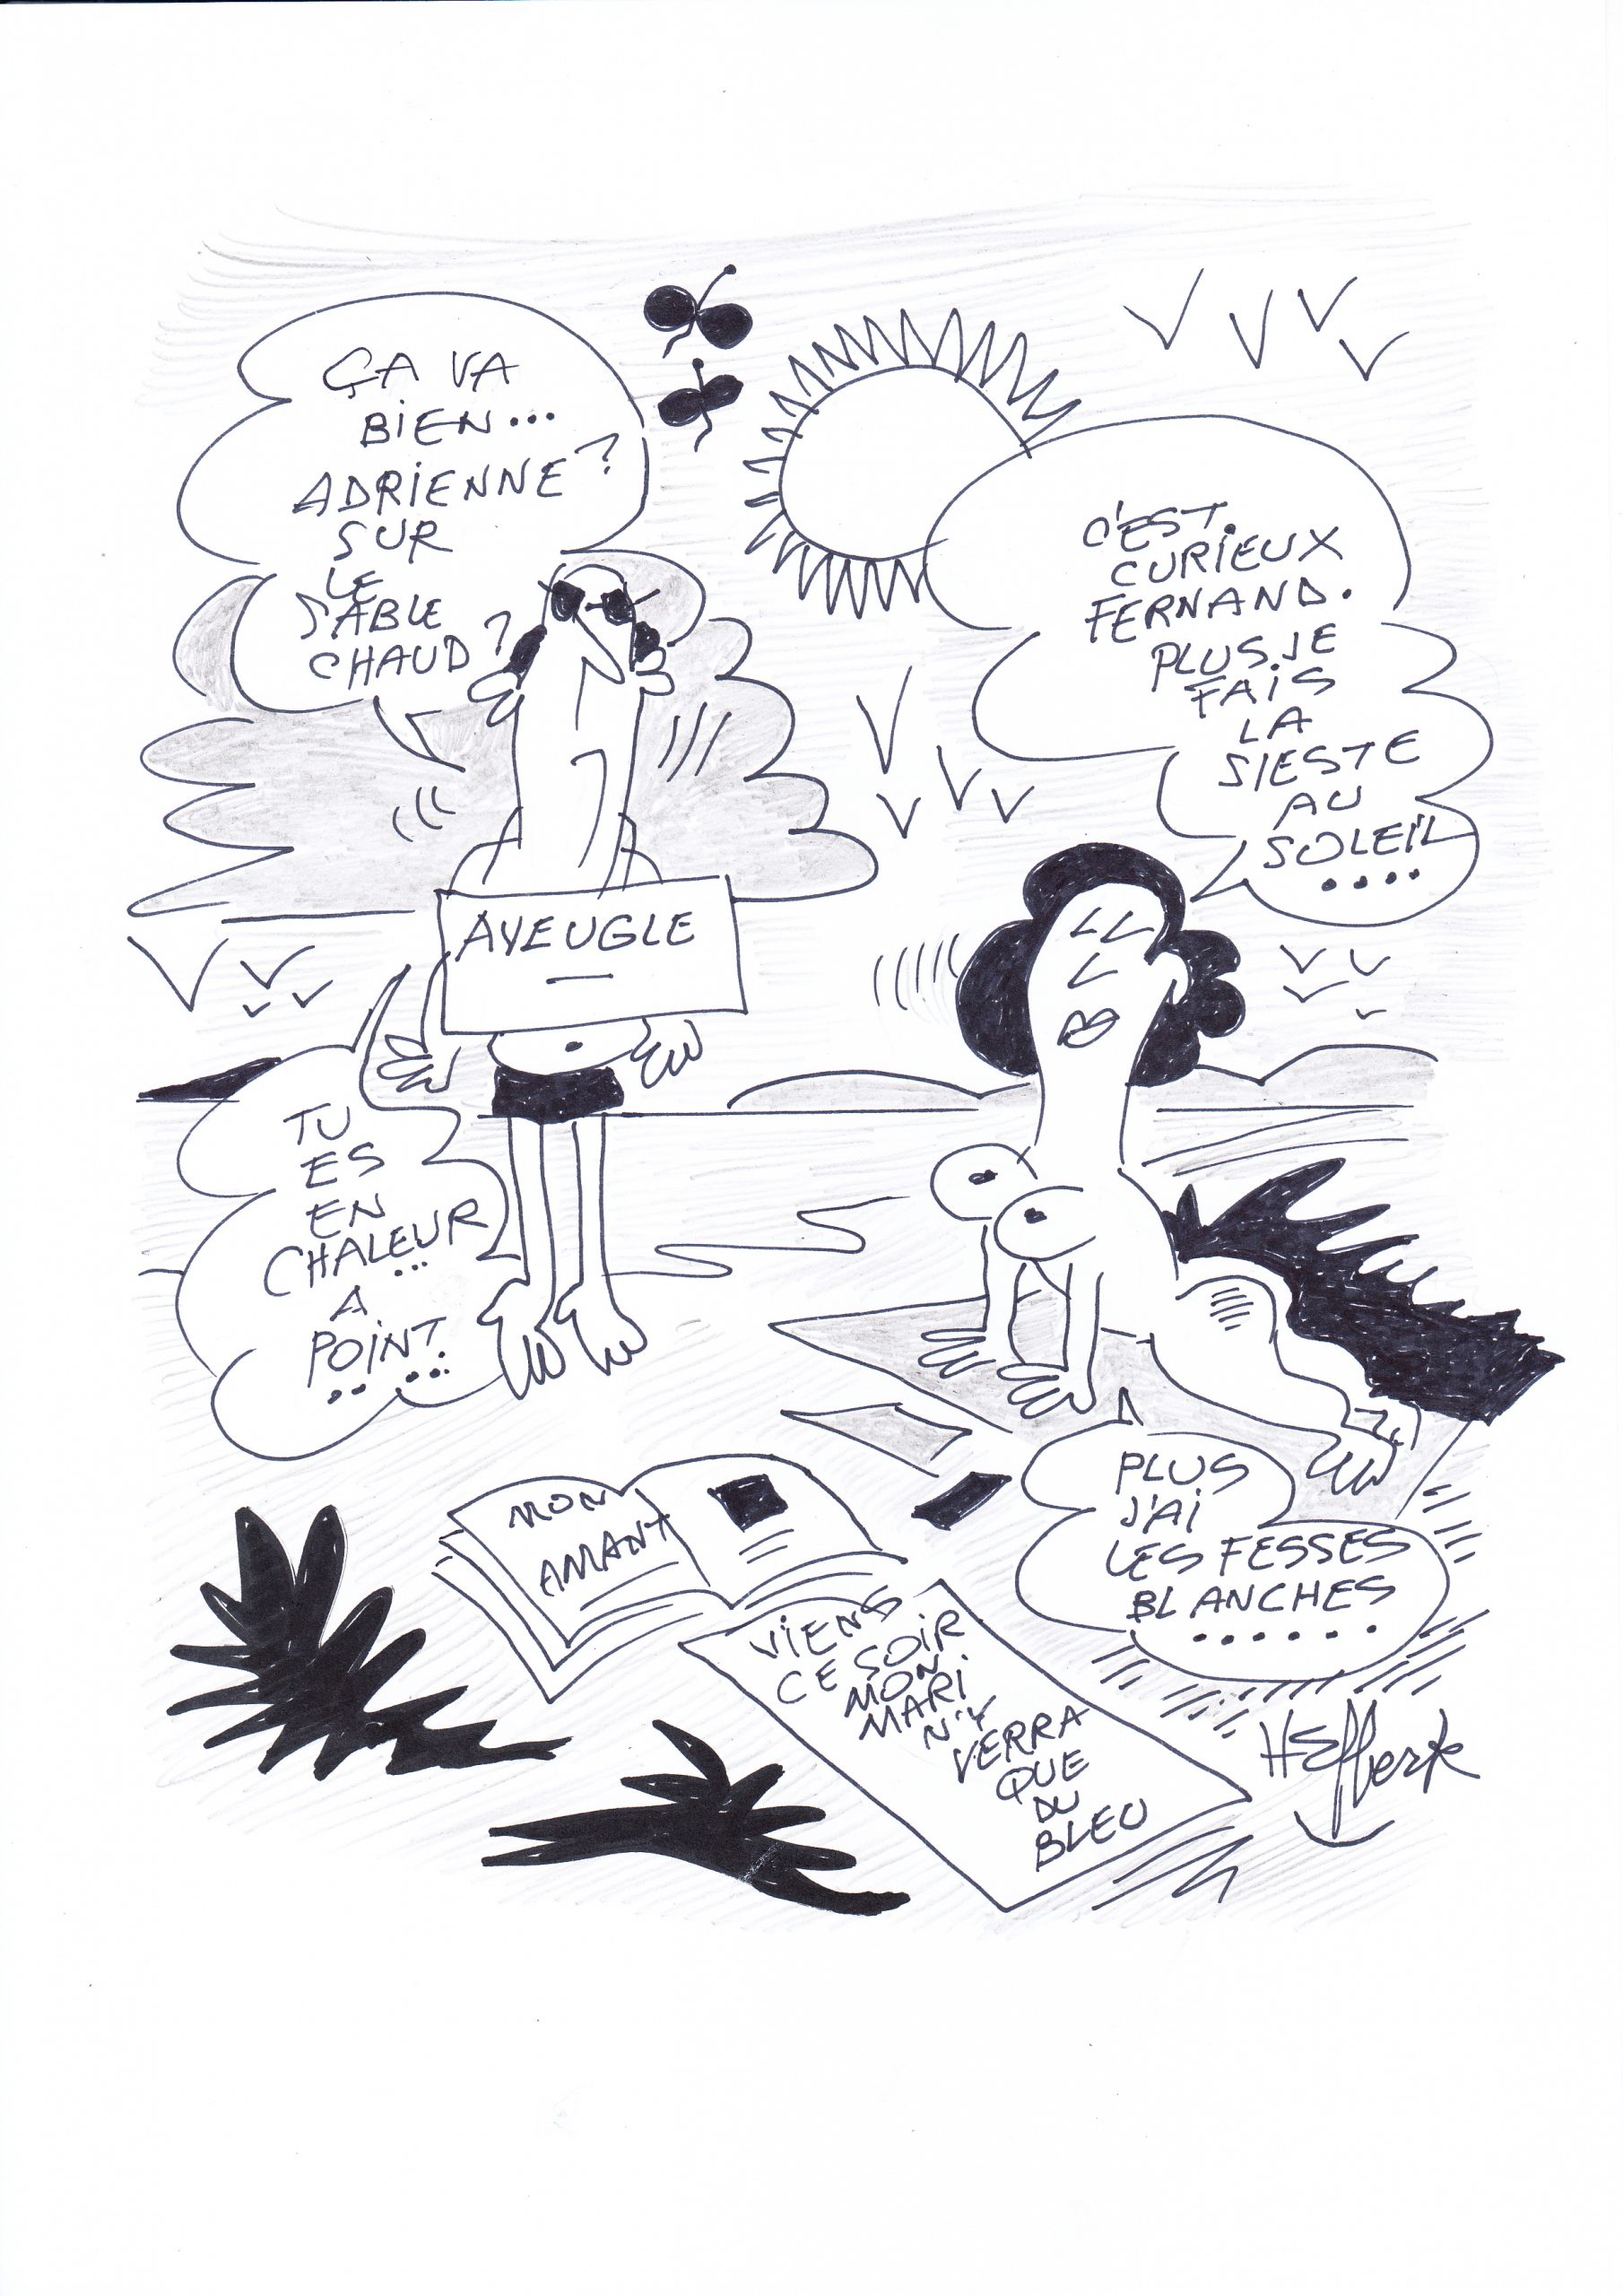 ÇA VA
BIEN...
ADRIENNE?
SUR
LE
SABLE
CHAUD?
C'EST
CURIEUX
FERNAND.
PLUS JE
FAIS
LA
SIESTE
AU
SOLEIL
....
AVEUGLE
TU
ES
EN
CHALEUR
...
A
POINT.
.. ...
PLUS
J'AI
LES FESSES
BLANCHES
......
MON
AMANT
VIENS
CE SOIR
MON
MARI
N'Y
VERRA
QUE
DU
BLEU